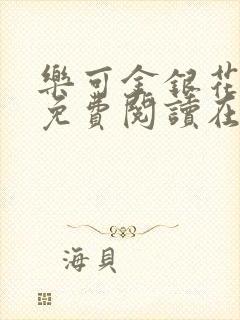 樂可金銀花
免費閱讀在
海貝